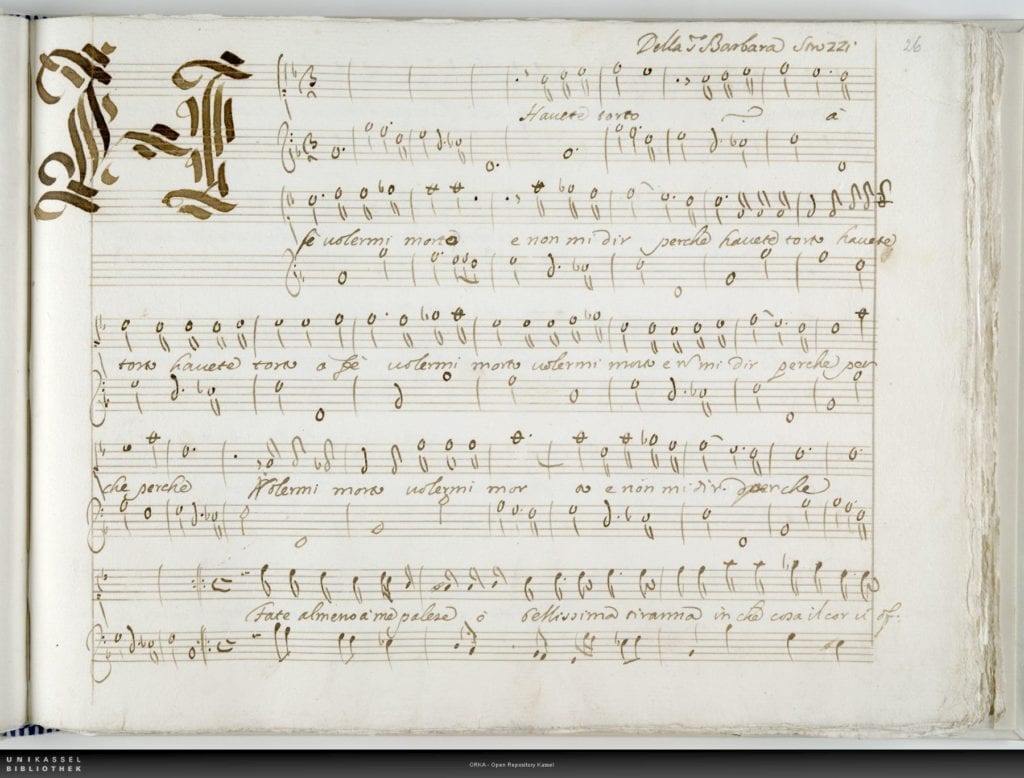 Della Sr Barbara Strozzi.
26
H
Havete torto à
fè volermi morto e non mi dir perche havete torto havete
torto havete torto a fè volermi morto volermi morto e nõ mi dir perche per
che perche Volermi morto volermi mor to e non mi dir. perche
Fate almeno a me palese ò bellissima tiranna in che cosa il cor v' of:
UNIKASSEL
BIBLIOTHEK
ORKA - Open Repository Kassel